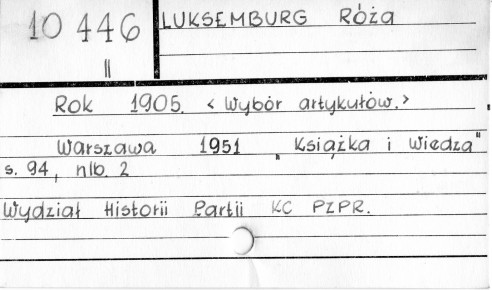 10 446
II
LUKSEMBURG RÓŻA
Rok 1905. < Wybór artykułów. >
Warszawa 1951 „Książka i Wiedza"
s. 94, nlb. 2
Wydział Historii Partii KC PZPR.